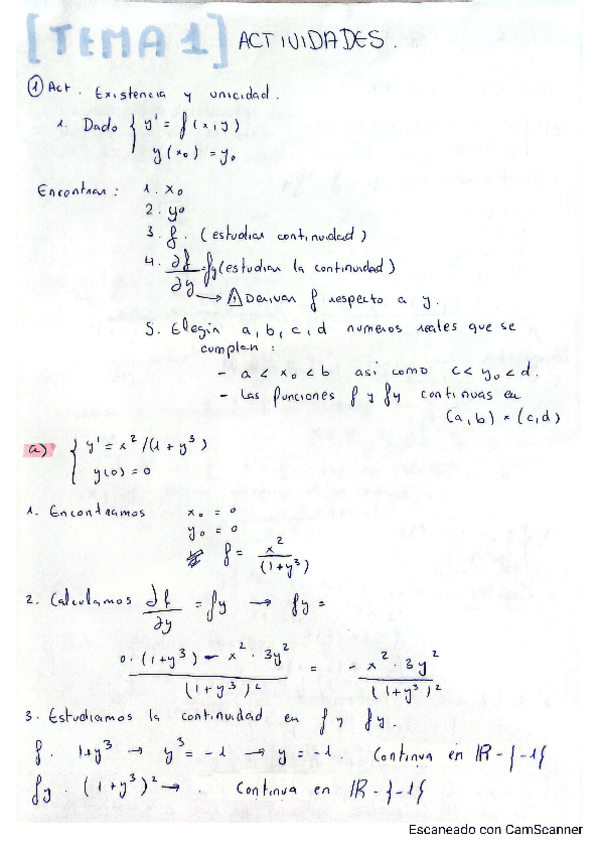 [TEMA 1] ACTIVIDADES.
① Act. Existencia y unicidad.
1. Dado { y' = f(x,y)
y(x₀) = y₀
Encontrar: 1. x₀
2. y₀
3. f. (estudiar continuidad)
4. ∂f/∂y = fy (estudiar la continuidad)
→ ⚠ Derivar f respecto a y.
5. Elegir a, b, c, d numeros reales que se
cumplan:
- a < x₀ < b asi como c < y₀ < d.
- Las funciones f y fy continuas en
(a,b) × (c,d)
a) { y' = x²/(1 + y³)
y(0) = 0
1. Encontramos x₀ = 0
y₀ = 0
f = x²/(1+y³)
2. Calculamos ∂f/∂y = fy → fy =
0·(1+y³) - x²·3y²/(1+y³)² = -x²·3y²/(1+y³)²
3. Estudiamos la continuidad en f y fy.
f. 1+y³ → y³ = -1 → y = -1. Continua en ℝ-{-1}
fy. (1+y³)² → . Continua en ℝ-{-1}
Escaneado con CamScanner